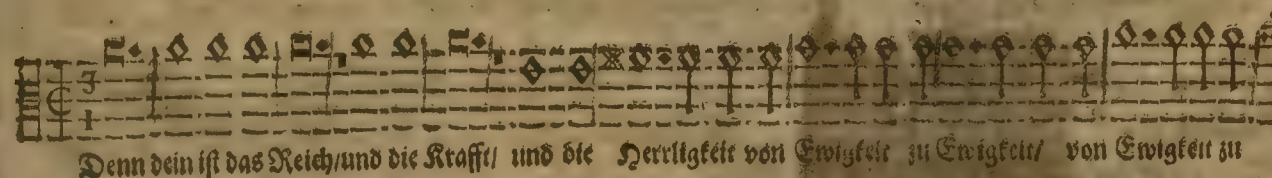 Denn dein ist das Reich/und die Krafft/ und die Herrligkeit von Ewigkeit zu Ewigkeit/ von Ewigkeit zu